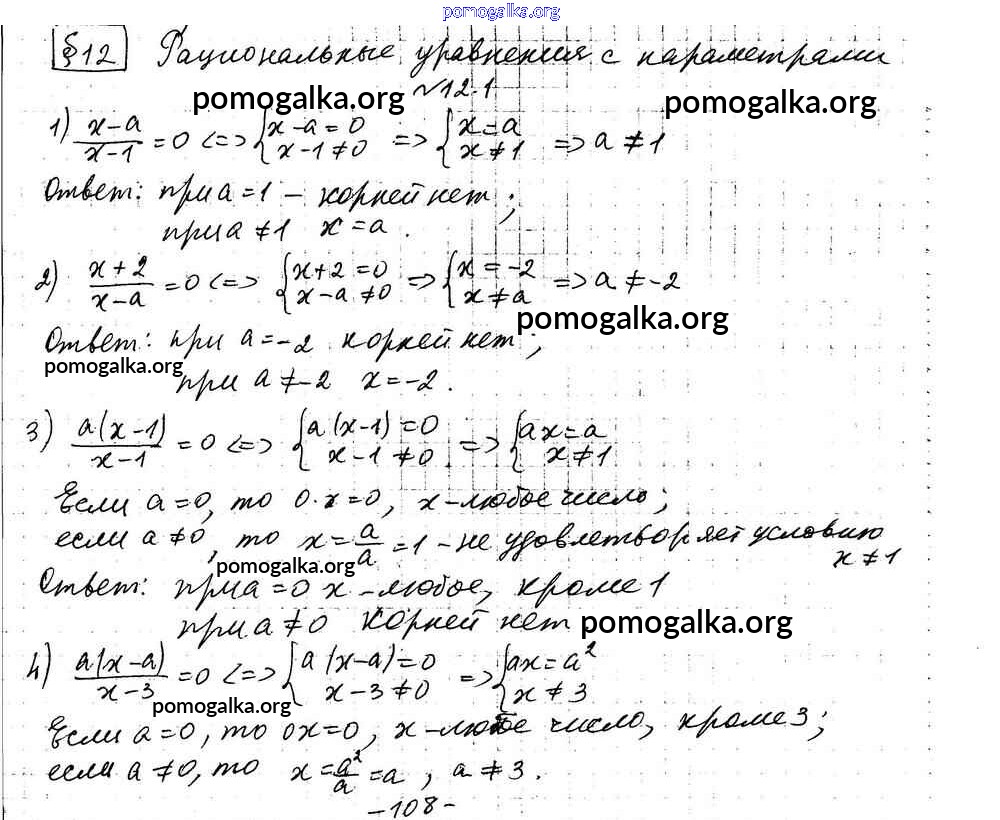 pomogalka.org
§12 Рациональные уравнения с параметрами
pomogalka.org №12.1 pomogalka.org
1) (x-a)/(x-1) = 0 <=> {x-a=0 {x-1≠0 => {x=a {x≠1 => a≠1
Ответ: при a=1 – корней нет;
при a≠1 x=a.
2) (x+2)/(x-a) = 0 <=> {x+2=0 {x-a≠0 => {x=-2 {x≠a => a≠-2
pomogalka.org
Ответ: при a=-2 корней нет;
pomogalka.org
при a≠-2 x=-2.
3) a(x-1)/(x-1) = 0 <=> {a(x-1)=0 {x-1≠0 => {ax=a {x≠1
Если a=0, то 0·x=0, x-любое число;
если a≠0, то x=a/a=1 – не удовлетворяет условию
x≠1
pomogalka.org
Ответ: при a=0 x-любое, кроме 1
при a≠0 корней нет pomogalka.org
4) a(x-a)/(x-3) = 0 <=> {a(x-a)=0 {x-3≠0 => {ax=a² {x≠3
pomogalka.org
Если a=0, то 0x=0, x-любое число, кроме 3;
если a≠0, то x=a²/a=a, a≠3.
-108-